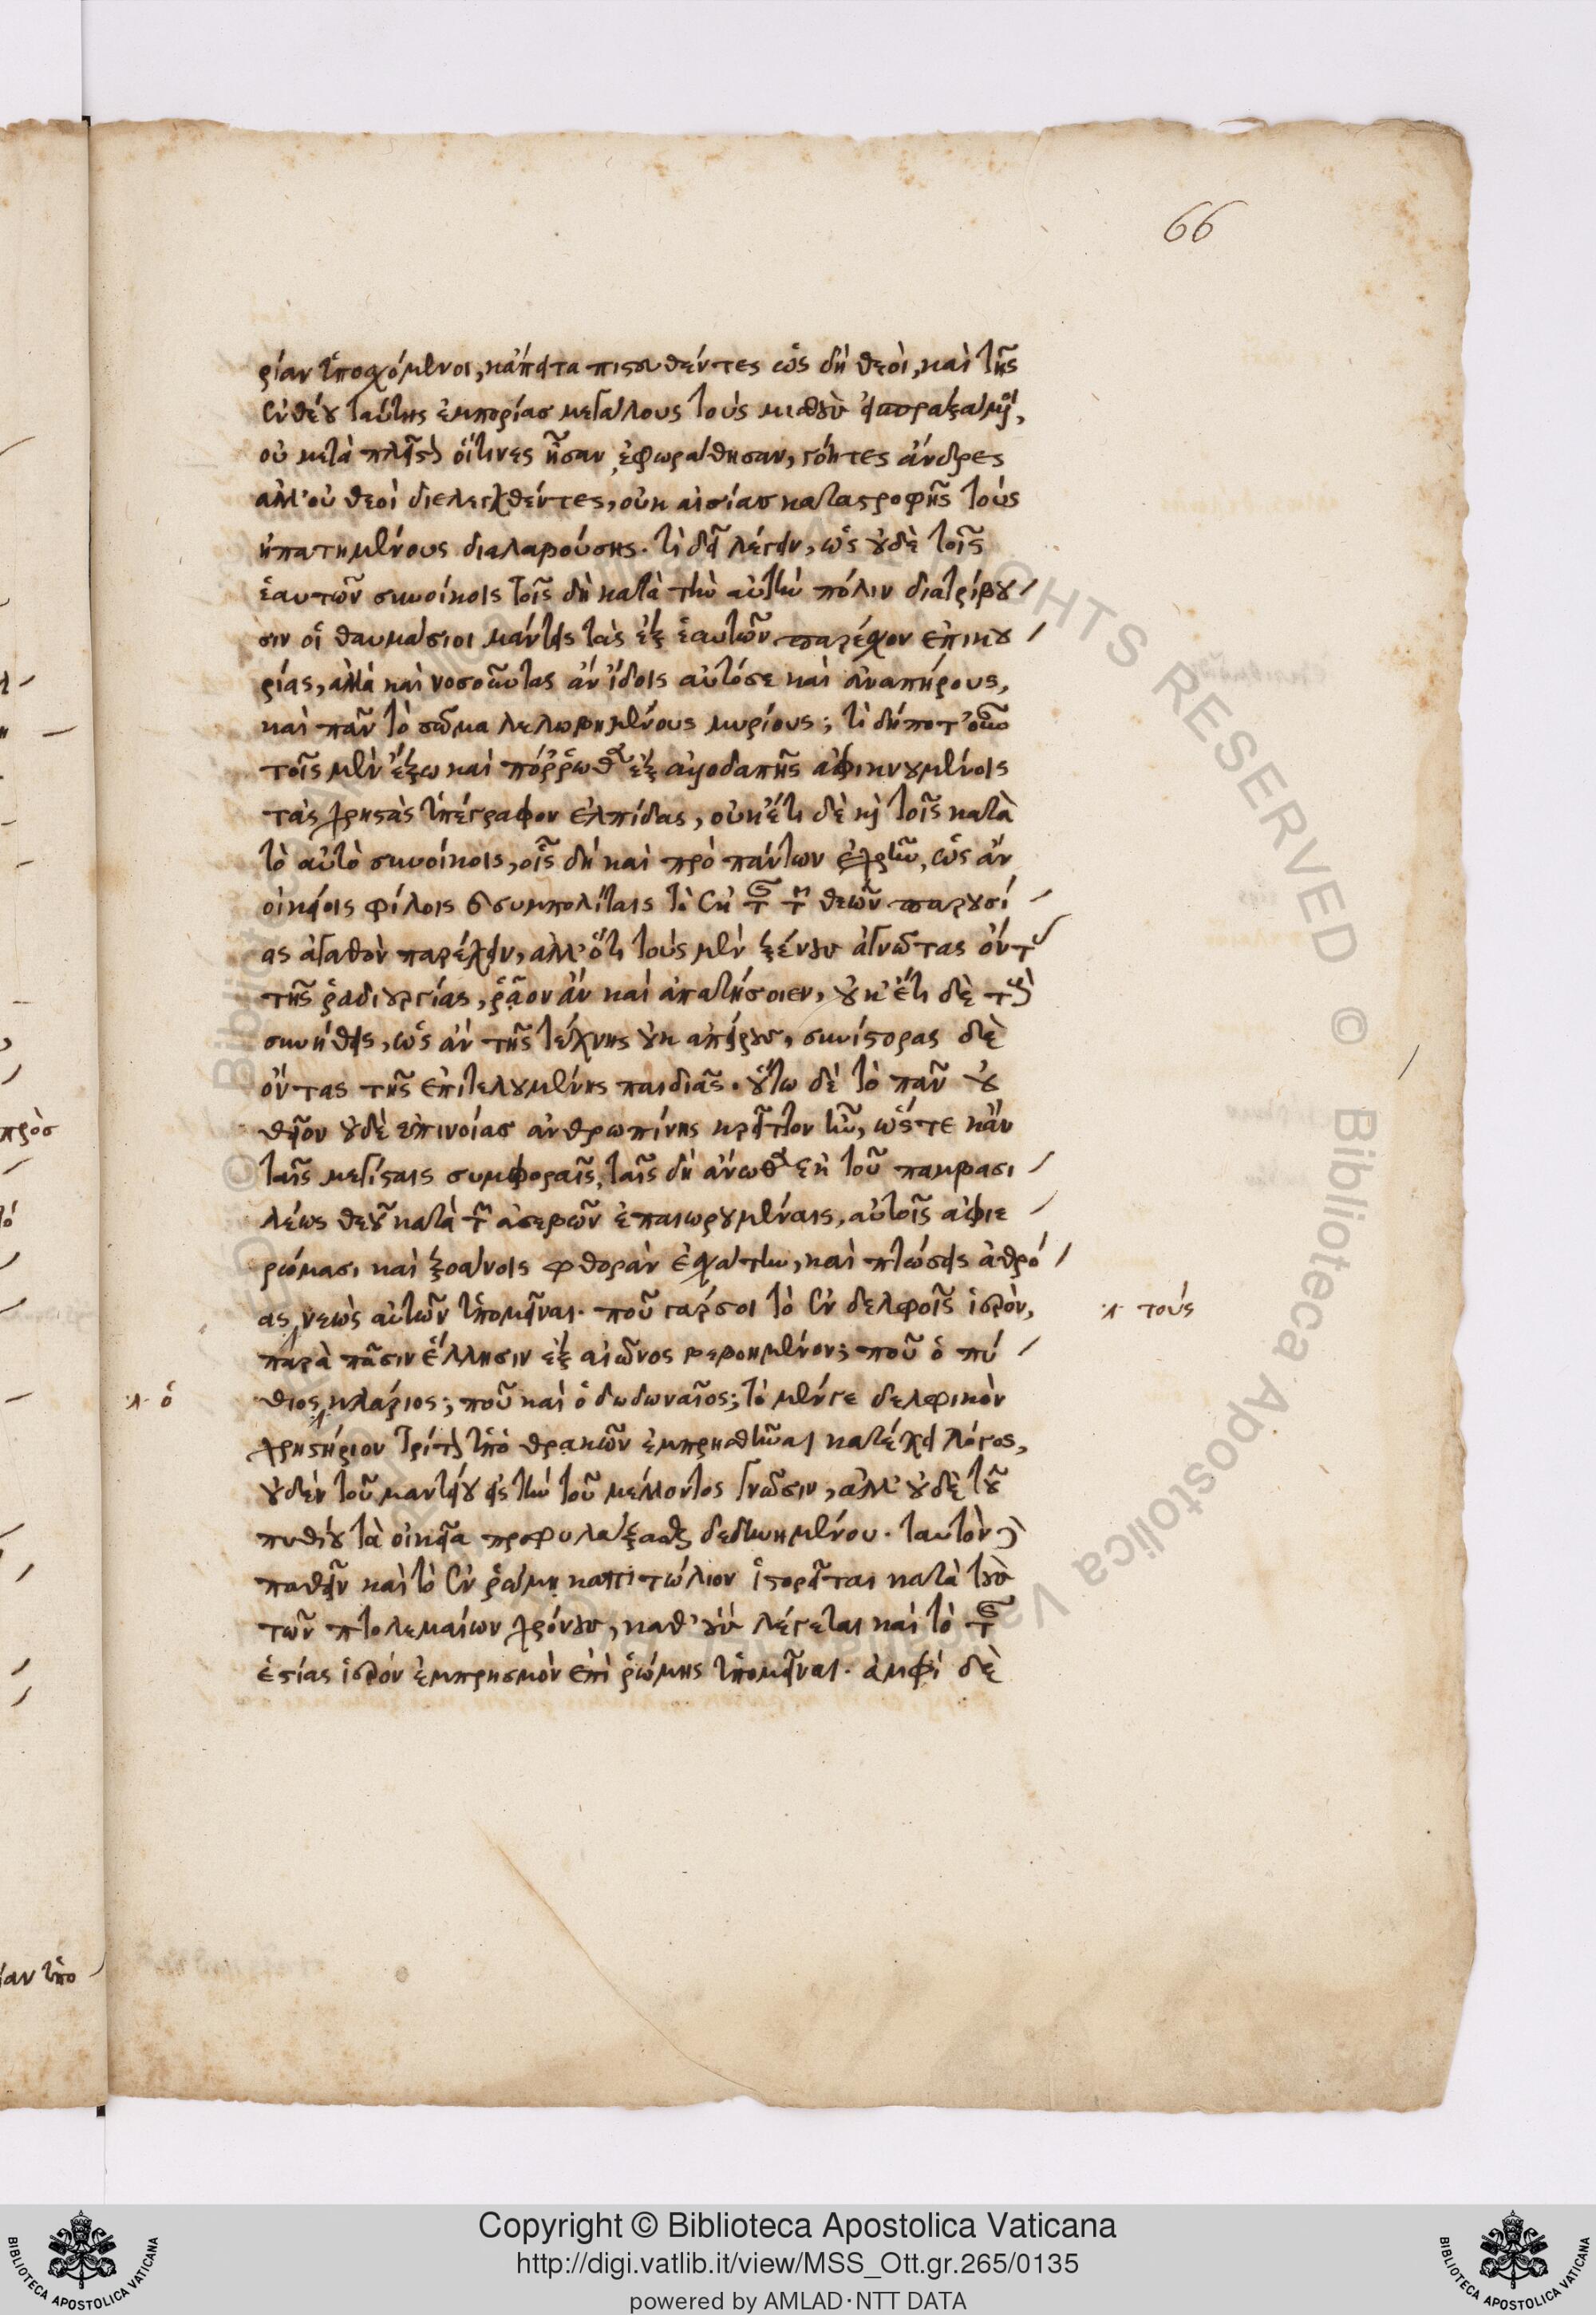 66
ρίαν ὑποσχόμενοι, κἄπειτα πιστευθέντες ὡς δὴ θεοὶ, καὶ τῆς
ἐνθέου ταύτης ἐμπορίας μεγάλους τοὺς μισθοὺς εἰσπραξάμενοι,
οὐ μετὰ πλεῖστον οἵτινες ἦσαν ἐφωράθησαν, γόητες ἄνδρες
ἀλλ' οὐ θεοὶ διελεγχθέντες, οὐκ αἰσίας καταστροφῆς τοὺς
ἠπατημένους διαλαβούσης. τί δεῖ λέγειν, ὡς οὐδὲ τοῖς
ἑαυτῶν συνοίκοις τοῖς δὴ κατὰ τὴν αὐτὴν πόλιν διατρίβου
σιν οἱ θαυμάσιοι μάντεις τὰς ἐξ ἑαυτῶν παρέχον ἐπικου
ρίας, ἀλλὰ καὶ νοσοῦντας ἂν ἴδοις αὐτόσε καὶ ἀναπήρους,
καὶ πᾶν τὸ σῶμα λελωβημένους μυρίους; τί δήποτ' οὖν
τοῖς μὲν ἔξω καὶ πόρρωθεν ἐξ ἀλλοδαπῆς ἀφικνουμένοις
τὰς χρηστὰς ὑπέγραφον ἐλπίδας, οὐκ ἔτι δὲ καὶ τοῖς κατὰ
τὸ αὐτὸ συνοίκοις, οἷς δὴ καὶ πρὸ πάντων ἐχρῆν, ὡς ἂν
οἰκείοις φίλοις καὶ συμπολίταις τὸ ἐκ τῆς τῶν θεῶν παρουσί
ας ἀγαθὸν παρέχειν, ἀλλ' ὅτι τοὺς μὲν ξένους ἀγνῶτας ὄντας
τῆς ῥᾳδιουργίας, ῥᾷον ἂν καὶ ἀπατήσοιεν, οὐκ ἔτι δὲ τοὺς
συνήθεις, ὡς ἂν τῆς τέχνης οὐκ ἀπείρους, συνίστορας δὲ
ὄντας τῆς ἐπιτελουμένης παιδιᾶς. οὕτω δὲ τὸ πᾶν οὐ
θεῖον οὐδὲ ἐπινοίας ἀνθρωπίνης κρεῖττον ἦν, ὥστε κἂν
ταῖς μεγίσταις συμφοραῖς, ταῖς δὴ ἄνωθεν ἐκ τοῦ παμβασι
λέως θεοῦ κατὰ τῶν ἀσεβῶν ἐπαιωρουμέναις, αὐτοῖς ἀφιε
ρώμασι καὶ ξοάνοις φθορὰν ἐσχάτην, καὶ πτώσεις ἀθρό
ας νεὼς αὐτῶν ὑπομεῖναι. ποῦ γάρ σοι τὸ ἐν δελφοῖς ἱερὸν,
⁁ τοὺς
παρὰ πᾶσιν ἕλλησιν ἐξ αἰῶνος βεβοημένον; ποῦ ὁ πύ
⁁ ὁ
θιος κλάριος; ποῦ καὶ ὁ δωδωναῖος; τὸ μέν γε δελφικὸν
χρηστήριον τρίτον ὑπὸ θρᾳκῶν ἐμπρησθῆναι κατέχει λόγος,
οὐδὲν τοῦ μαντείου εἰς τὴν τοῦ μέλλοντος γνῶσιν, ἀλλ' οὐδὲ τοῦ
πυθίου τὰ οἰκεῖα προφυλάξασθαι δεδυνημένου. ταυτὸν δὲ
παθεῖν καὶ τὸ ἐν ῥώμῃ καπιτώλιον ἱστορεῖται κατὰ τοὺς
τῶν πτολεμαίων χρόνους, καθ' οὓς λέγεται καὶ τὸ τῆς
ἑστίας ἱερὸν ἐμπρησμὸν ἐπὶ ῥώμης ὑπομεῖναι. ἀμφὶ δὲ
πρὸς
ίαν ὑπο
© Biblioteca Apostolica Vaticana
ALL RIGHTS RESERVED © Biblioteca Apostolica Vaticana
Copyright © Biblioteca Apostolica Vaticana
http://digi.vatlib.it/view/MSS_Ott.gr.265/0135
powered by AMLAD·NTT DATA
BIBLIOTECA APOSTOLICA VATICANA
BIBLIOTECA APOSTOLICA VATICANA